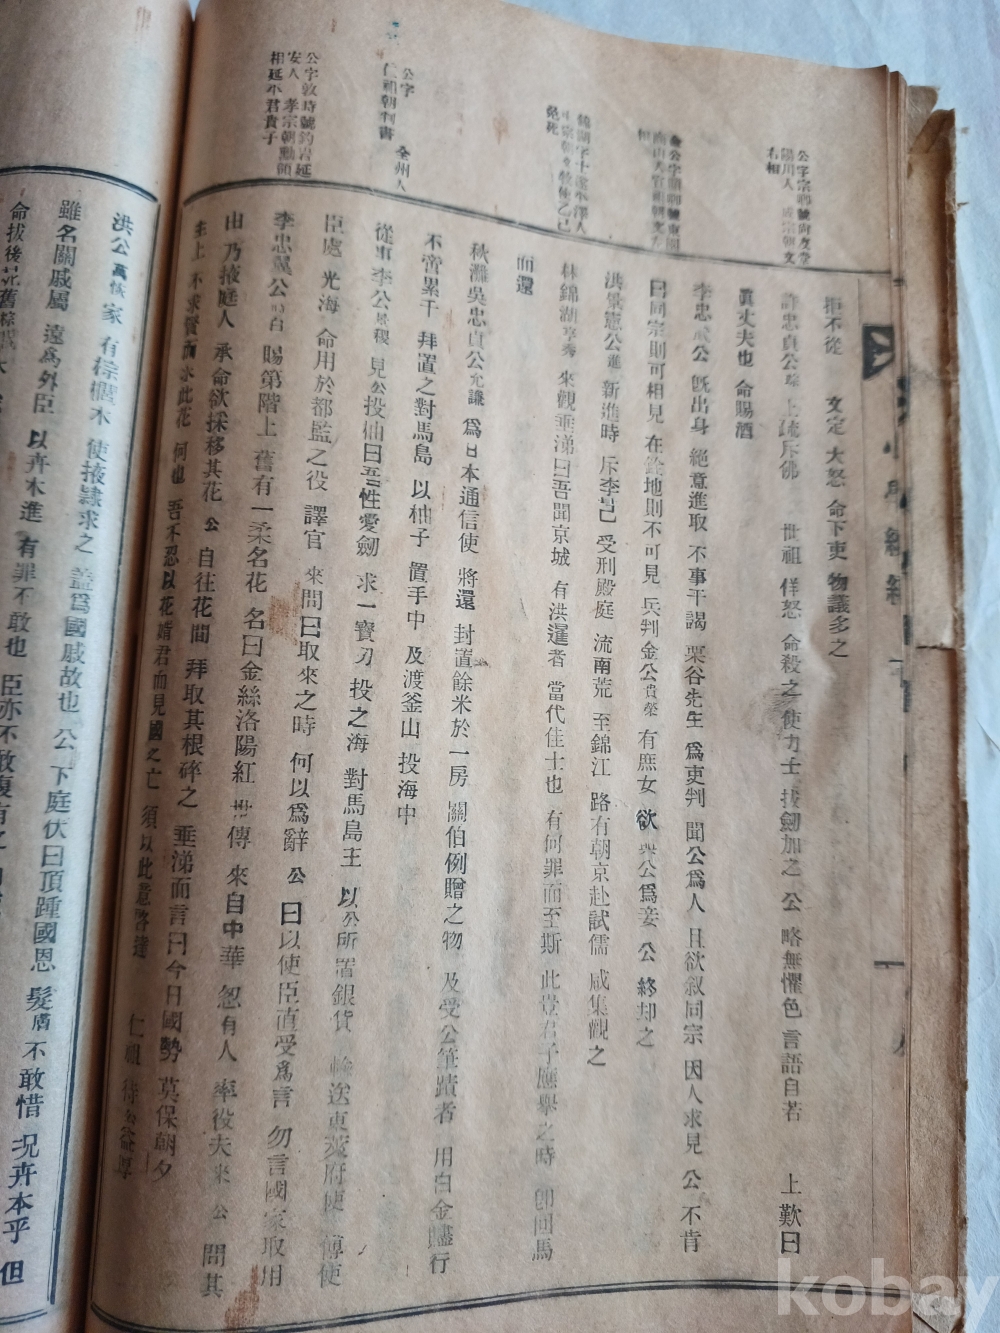 拒不從 文定 大怒 命下吏 物議多之
許忠貞公琮 上疏斥佛 世祖 佯怒 命殺之 使力士 拔劒加之 公 略無懼色 言語自若 上歎曰
眞丈夫也 命賜酒
李忠武公 旣出身 絕意進取 不事干謁 栗谷先生 爲吏判 聞公爲人 且欲叙同宗 因人求見 公 不肯
曰同宗則可相見 在銓地則不可見 兵判金公貴榮 有庶女 欲與公爲妾 公 終却之
洪景憲公暹 新進時 斥李芑 受刑殿庭 流南荒 至錦江 路有朝京赴試儒 咸集觀之
林錦湖亨秀 來觀垂涕曰吾聞京城 有洪暹者 當代佳士也 有何罪而至斯 此豈君子應擧之時 卽回馬
而還
秋灘吳忠貞公允謙 爲日本通信使 將還 封置餘米於一房 關伯例贈之物 及受公筆蹟者 用白金贐行
不啻累千 拜置之對馬島 以柚子 置手中 及渡釜山 投海中
從事李公景稷 見公投柚曰吾性愛劒 求一寶刃 投之海 對馬島主 以公所置銀貨 輸送東萊府使 傳使
臣處 光海 命用於都監之役 譯官 來問曰取來之時 何以爲辭 公 曰以使臣直受爲言 勿言國家取用
李忠翼公時白 賜第階上 舊有一柔名花 名曰金絲洛陽紅 世傳 來自中華 忽有人 率役夫來 公 問其
由 乃掖庭人 承命欲採移其花 公 自往花間 拜取其根碎之 垂涕而言曰今日國勢 莫保朝夕
主上 不求賢而求此花 何也 吾不忍以花媚君而見國之亡 須以此意啓達 仁祖 待公益厚
公字宗卿號尙友堂
陽川人 成宗朝文
右相
金公字顯卿號東園
尙山人宣祖朝文左
相
錦湖字士遂平澤人
中宗朝文牧使乙巳
冤死
公字 全州人
仁祖朝判書
公字敦時號釣岩延
安人 孝宗朝勳領
相延平君貴子
洪公萬恢家 有棕櫚木 使掖隷求之 盖爲國戚故也 公 下庭伏曰頂踵國恩 髮膚不敢惜 况卉木乎 但
雖名關戚屬 遠爲外臣 以卉木進 有罪不敢也 臣亦不敢復有之
命拔後苑舊棕櫚木
kobay